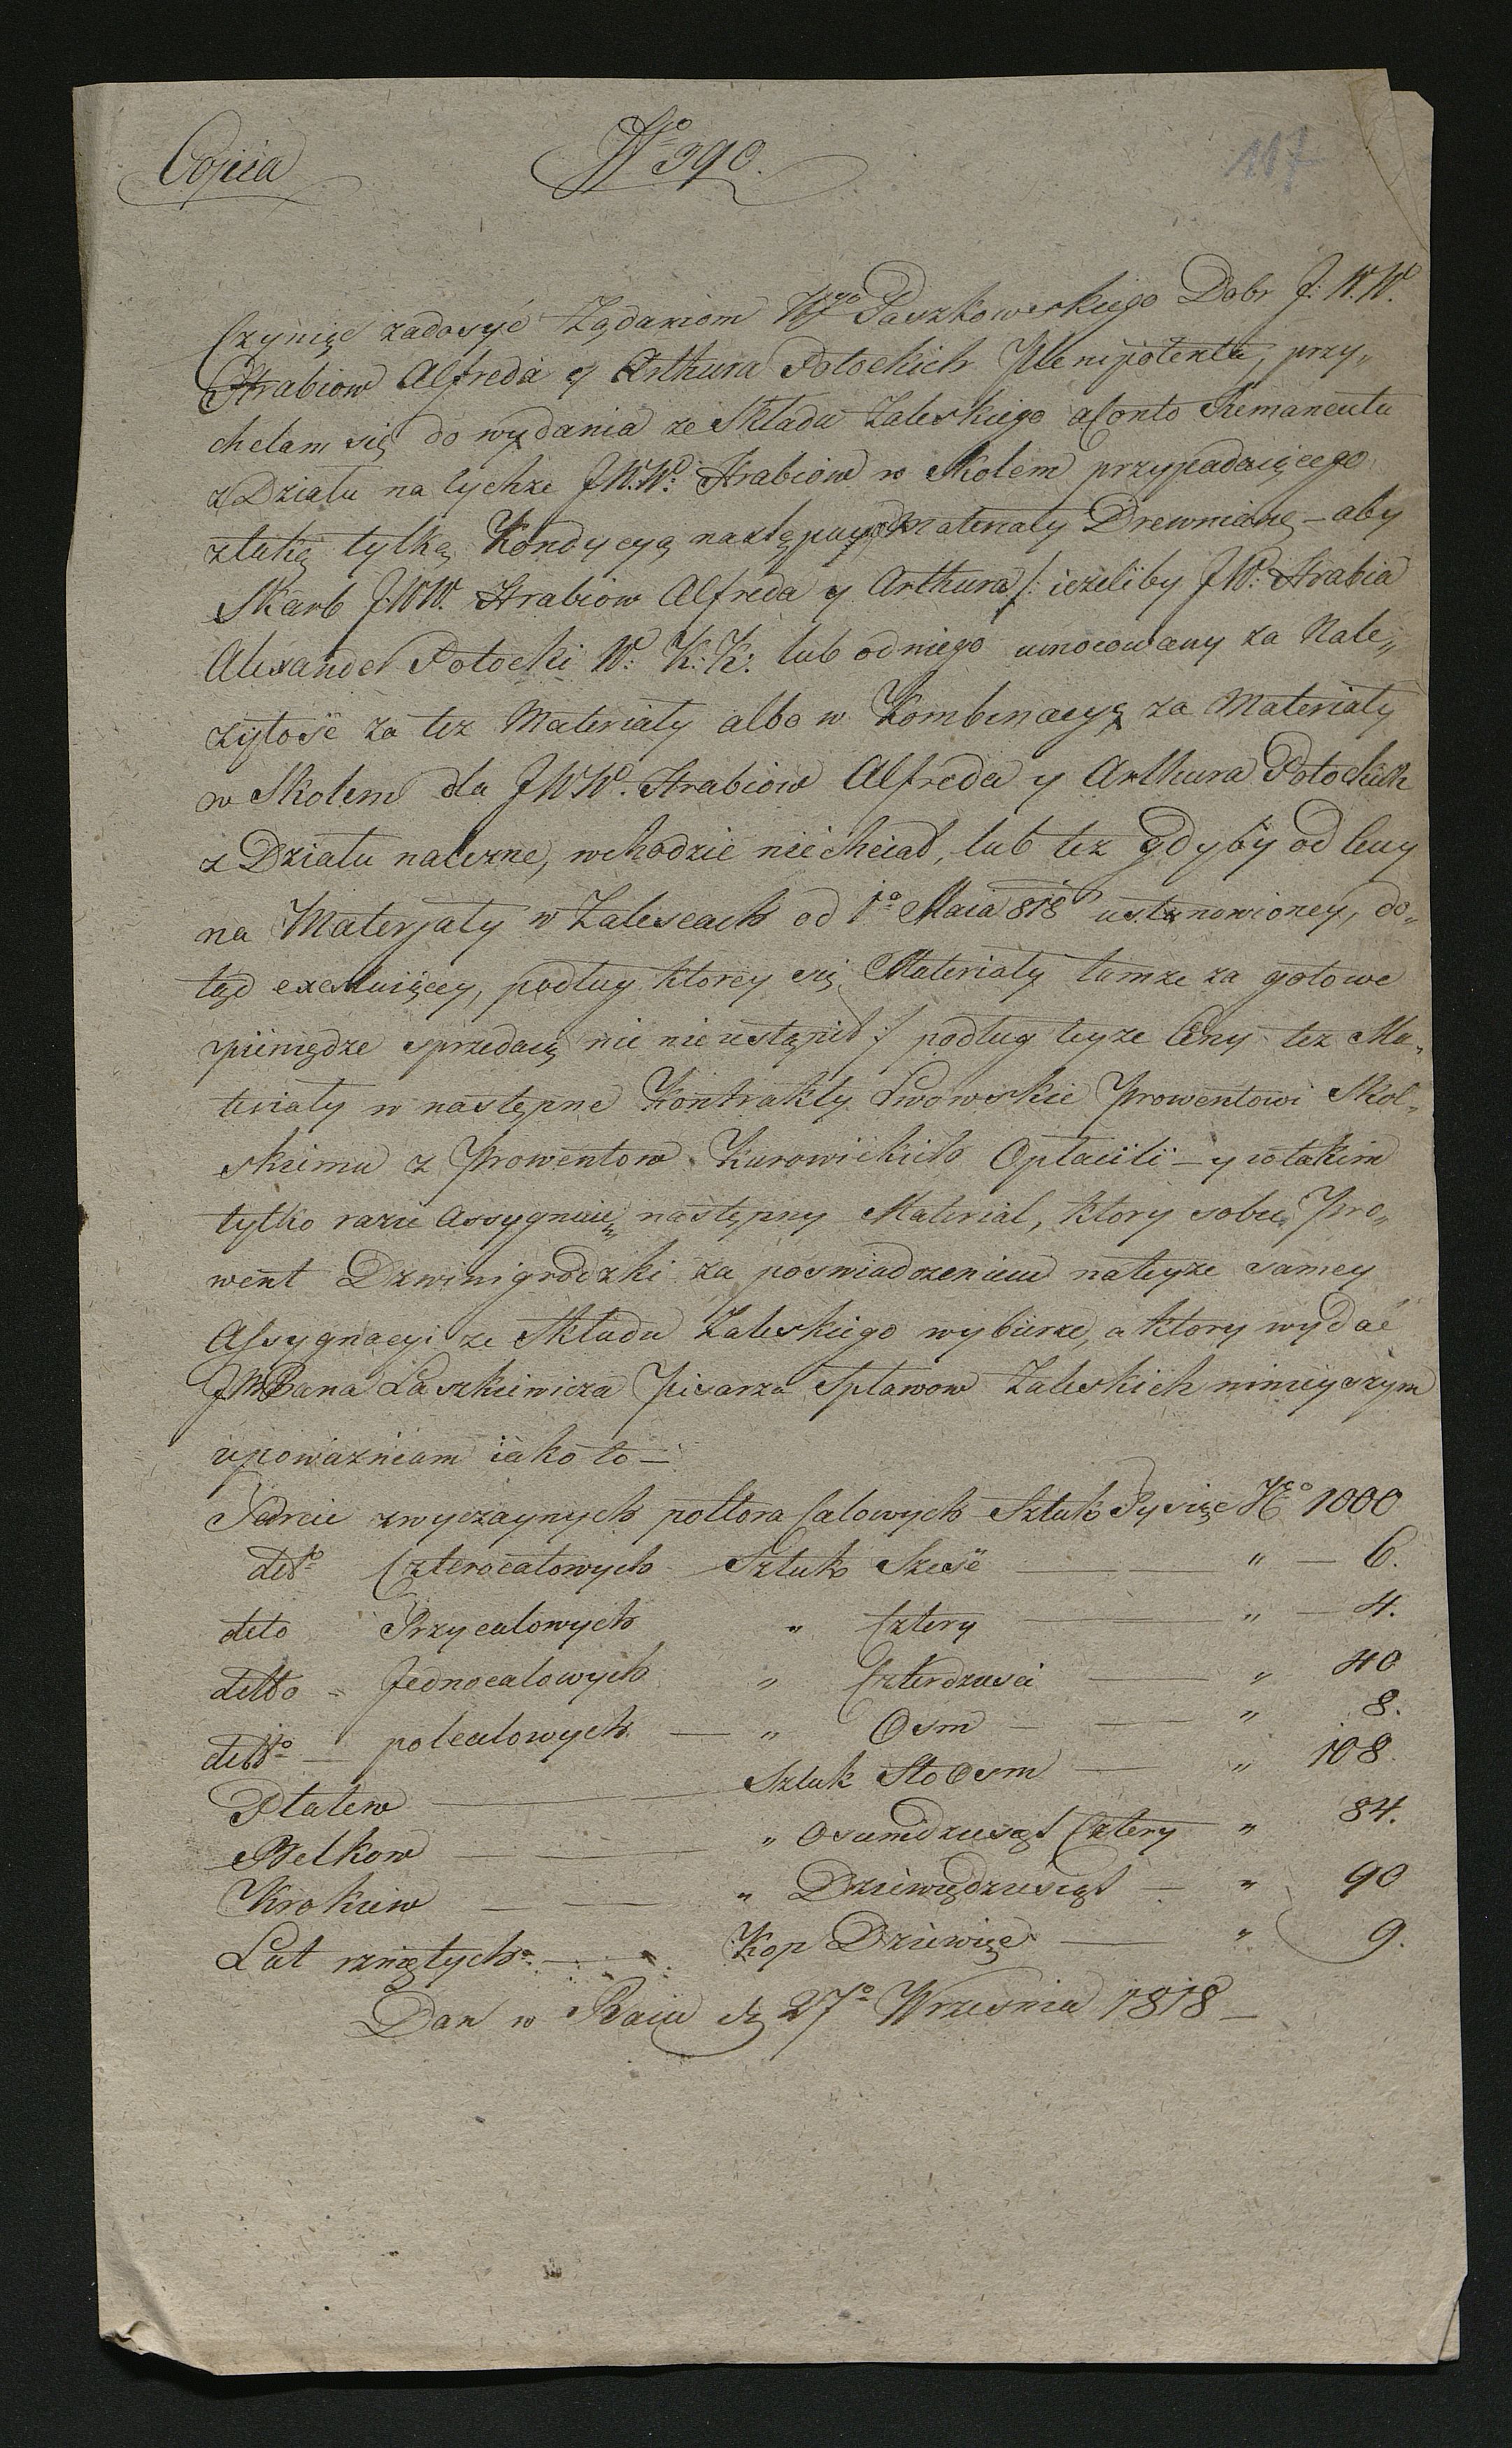 Copiia No 390. 117
Czyniąc zadosyć Żądaniom Wgo Paszkowskiego Dobr J: W.W.
Hrabiow Alfreda y Arthura Potockich Plenipotenta, przy„
chelam się do wydania ze Składu Zaleskiego a Conto Remanentu
z Działu na tychże JW.W: Hrabiow w Skolem przypadaiącego
z taką tylką Kondycyą następuiące Materiały Drewniane – aby
Skarb J.WW. Hrabiow Alfreda y Arthura /: ieżeliby JW: Hrabia
Alexander Potocki W: K: K: lub od niego umocowany za Nale„
żytość za też Materiały albo w Kombinacyą za Materiały
w Skolem dla JWW. Hrabiow Alfreda y Arthura Potockich
z Działu należne, wchodzić nie chciał, lub też gdyby od Ceny
na Materjały w Zalescach od 1o Maia 818 ustanowioney, do„
tąd exystuiącey, podług ktorey się Materiały tamże za gotowe
pieniądze sprzedaią nic nie ustąpił :/ podług teyże Ceny też Ma„
teriały w następne Kontrakty Lwowskie Prowentowi Skol„
skiemu z Prowentow Kurowickich Opłacili – y w takim
tylko razie Assygnuię następny Materiał, ktory sobie Pro„
went Dzwinigrodzki za poswiadczeniem na teyże samey
Assygnacyi ze Składu Zaleskiego wybierze, a ktory wydać
JmPana Laszkiewicza Pisarza Spławow Zaleskich ninieyszym
upoważniam iako to –
Tarcic zwyczaynych połtora Calowych Sztuk Tysiąc No 1000
detto Czterocalowych Sztuk Sześć „ – 6.
deto Trzycalowych „ Cztery „ – 4.
detto – Jednocalowych „ Czterdzieści „ 40
detto – polcalowych – „ Osm – „ 8.
Płatew Sztuk Sto Osm „ 108.
Belkow „ Osimdziesiąt Cztery „ 84.
Krokiew „ Dziewiędziesiąt – „ 90
Łat rzniętych Kop Dziewięć „ 9.
Dan w Raiu dn 27o Września 1818 –